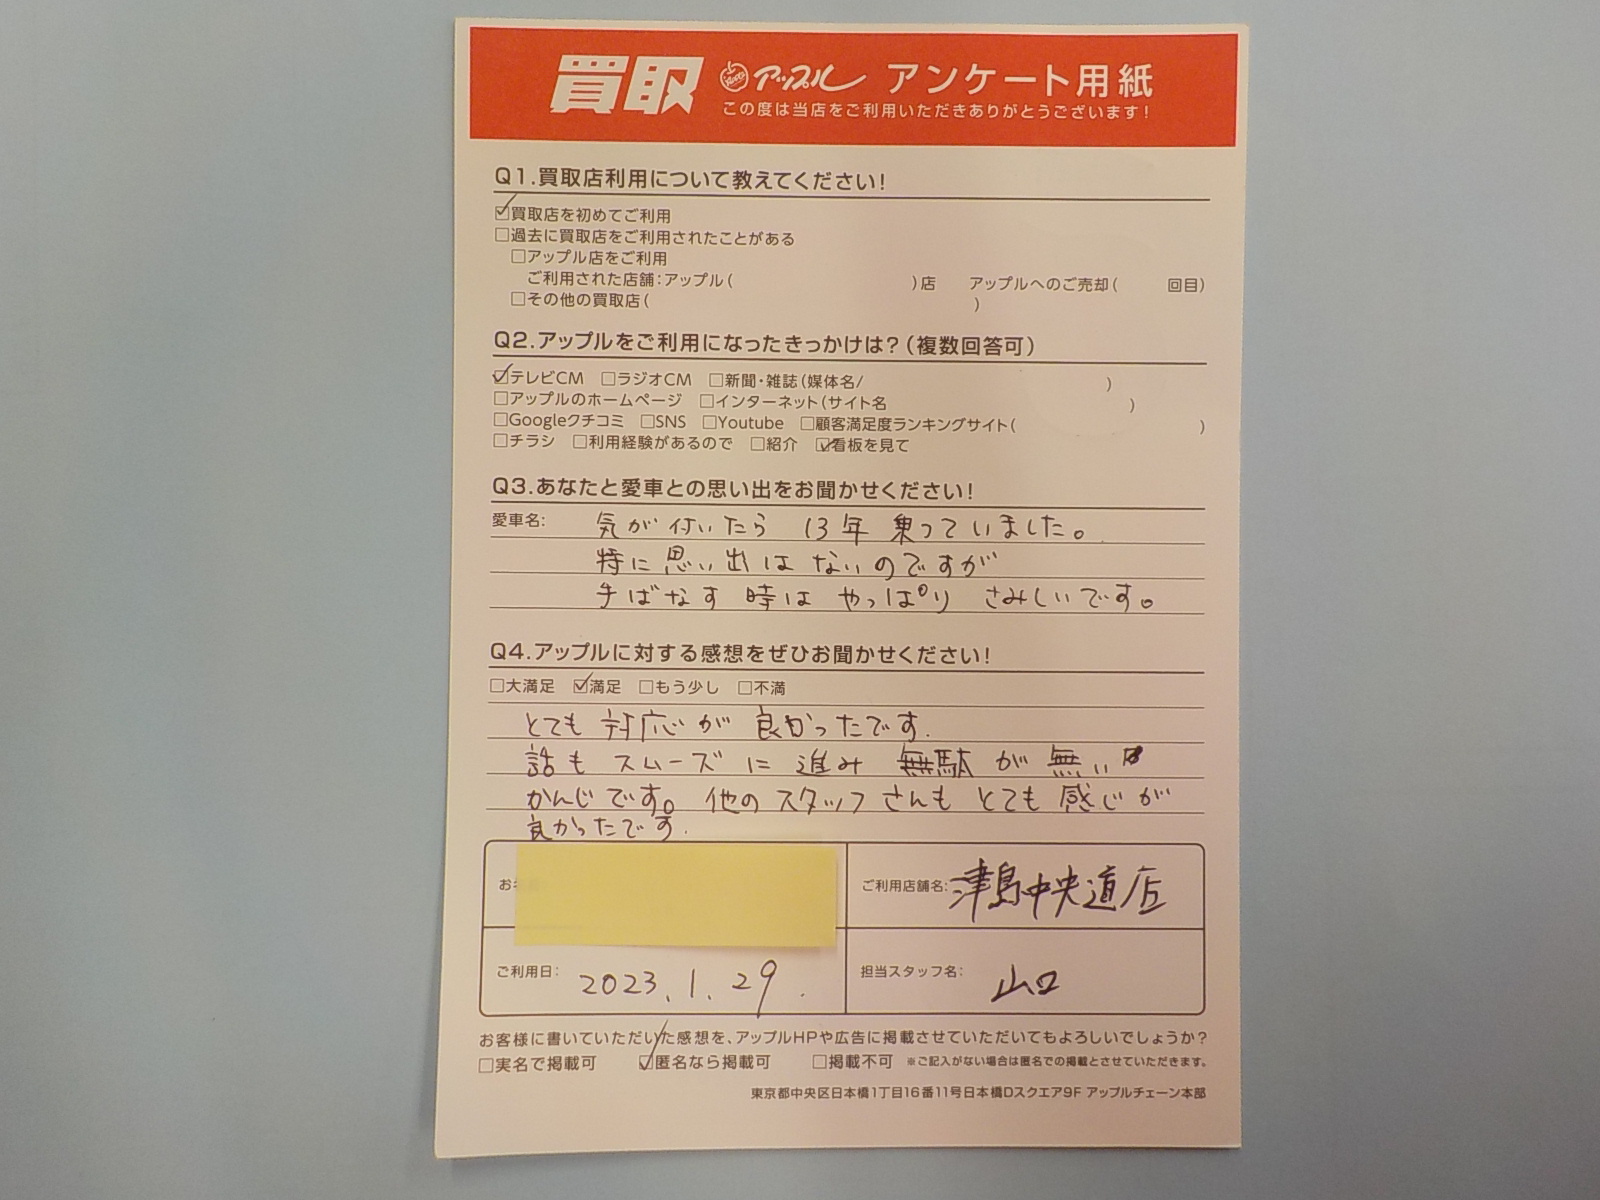 買取 アップル アンケート用紙
この度は当店をご利用いただきありがとうございます!
Q1.買取店利用について教えてください!
☑買取店を初めてご利用
□過去に買取店をご利用されたことがある
□アップル店をご利用
ご利用された店舗:アップル( )店 アップルへのご売却( 回目)
□その他の買取店( )
Q2.アップルをご利用になったきっかけは?(複数回答可)
☑テレビCM □ラジオCM □新聞・雑誌(媒体名/ )
□アップルのホームページ □インターネット(サイト名 )
□Googleクチコミ □SNS □Youtube □顧客満足度ランキングサイト( )
□チラシ □利用経験があるので □紹介 ☑看板を見て
Q3.あなたと愛車との思い出をお聞かせください!
愛車名: 気が付いたら 13年 乗っていました。
特に思い出はないのですが
手ばなす時は やっぱり さみしいです。
Q4.アップルに対する感想をぜひお聞かせください!
□大満足 ☑満足 □もう少し □不満
とても 対応が 良かったです.
話も スムーズに 進み 無駄が 無い
かんじです。他のスタッフさんも とても 感じが
良かったです.
お ご利用店舗名: 津島中央道店
ご利用日: 2023.1.29. 担当スタッフ名: 山口
お客様に書いていただいた感想を、アップルHPや広告に掲載させていただいてもよろしいでしょうか?
□実名で掲載可 ☑匿名なら掲載可 □掲載不可 ※ご記入がない場合は匿名での掲載とさせていただきます。
東京都中央区日本橋1丁目16番11号日本橋Dスクエア9F アップルチェーン本部